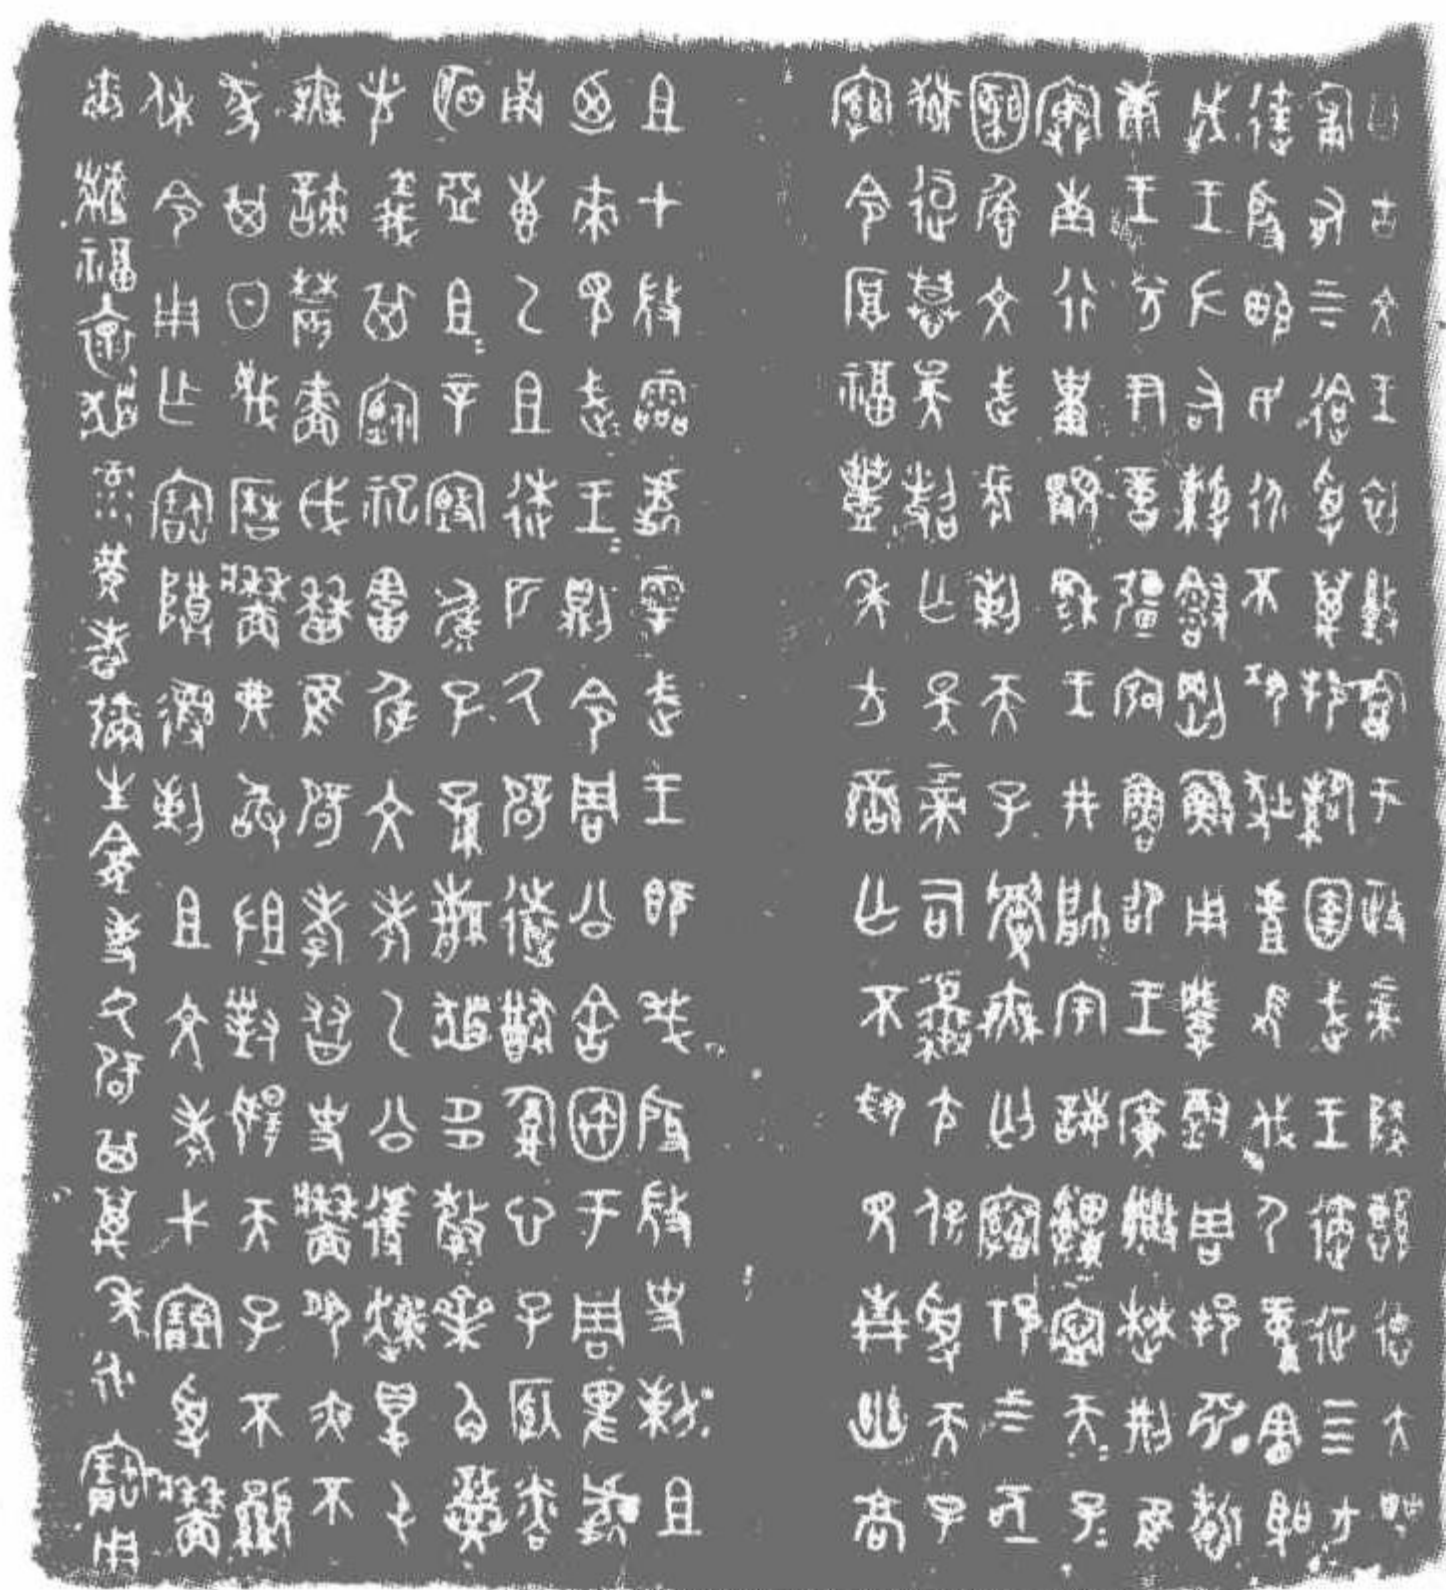 曰古文王初盭龢于政上帝降懿德大甹
匍有上下迨受萬邦𩁹圉武王遹征四方
達殷畯民永不巩狄虘𢼸伐尸童憲聖
成王左右綬㲃剛鯀用肇徹周邦淵哲
康王兮尹啻彊宏魯卲王廣㪤楚荊隹
寏南行祗覭穆王井帥宇誨𤕌寧天子天子
文武長剌天子無匄祁上下亟
慕昊亡斁上帝司夒尢保受天子
綰令厚福豐年方蠻亡不𢦚見青幽高
且甲微霝處雩武王既𢦏殷微史剌且
迺來見武王武王則令周公舍㝢于周卑處
甬叀乙且逨匹氒辟遠猷腹心子
明亞且且辛毓子孫多孷齊角
光義其禋祀害屖文考乙公遽爽得屯
無諫農嗇戉曆隹辟孝友史墻夙夜不
㒸其日蔑曆墻弗敢沮對揚天子不顯
休令用乍寶尊彝剌且文考弋受墻
爾福褱彔黃耇彌生龕事氒辟其萬年永寶用